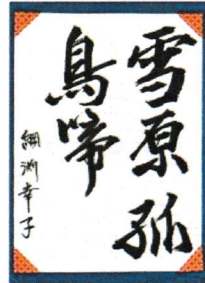 雪原孤
鳥啼
綱渕幸子